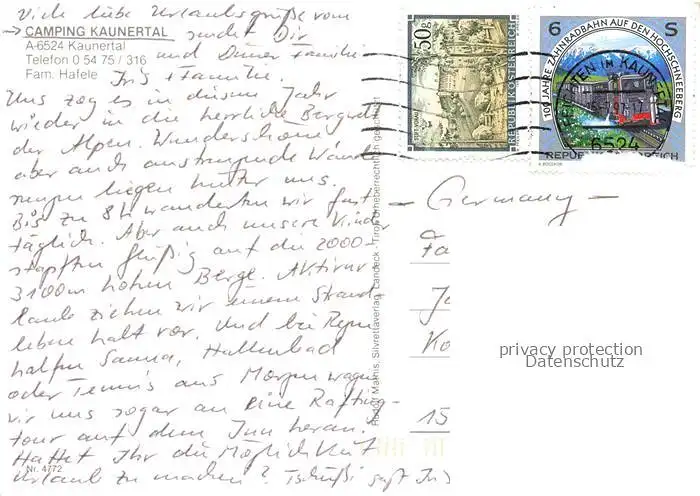 Viele liebe Urlaubsgrüße vom
→ CAMPING KAUNERTAL sendet Dir
A-6524 Kaunertal
Telefon 0 54 75 / 316
Fam. Hafele
und Deiner Familie
Iris + Familie.
Uns zog es in diesem Jahr
wieder in die herrliche Bergwelt
der Alpen. Wunderschöne
aber auch anstrengende Wande-
rungen liegen hinter uns.
Bis zu 8h wanderten wir fast
täglich. Aber auch unsere Kinder
stapften fleißig auf die 2000-
3100m hohen Berge. Aktivur-
laube ziehen wir einem Strand-
leben halt vor. Und bei Regen
halfen Sauna, Hallenbad
oder Tennis aus. Morgen wagen
wir uns sogar an eine Rafting-
tour auf dem Inn heran.
Hattet Ihr die Möglichkeit
Urlaub zu machen? Tschüßi sagt
Nr. 4772
Rudolf Mathis, Silvrettaverlag, Landeck - Tirol Urheberrechtlich geschützt
50g
STIFT VORAU
REPUBLIK ÖSTERREICH
6 S
100 JAHRE ZAHNRADBAHN AUF DEN HOCHSCHNEEBERG
REPUBLIK ÖSTERREICH
IM KAUNERTAL
6524
– Germany –
Fa
Ja
Ko
15
privacy protection
Datenschutz